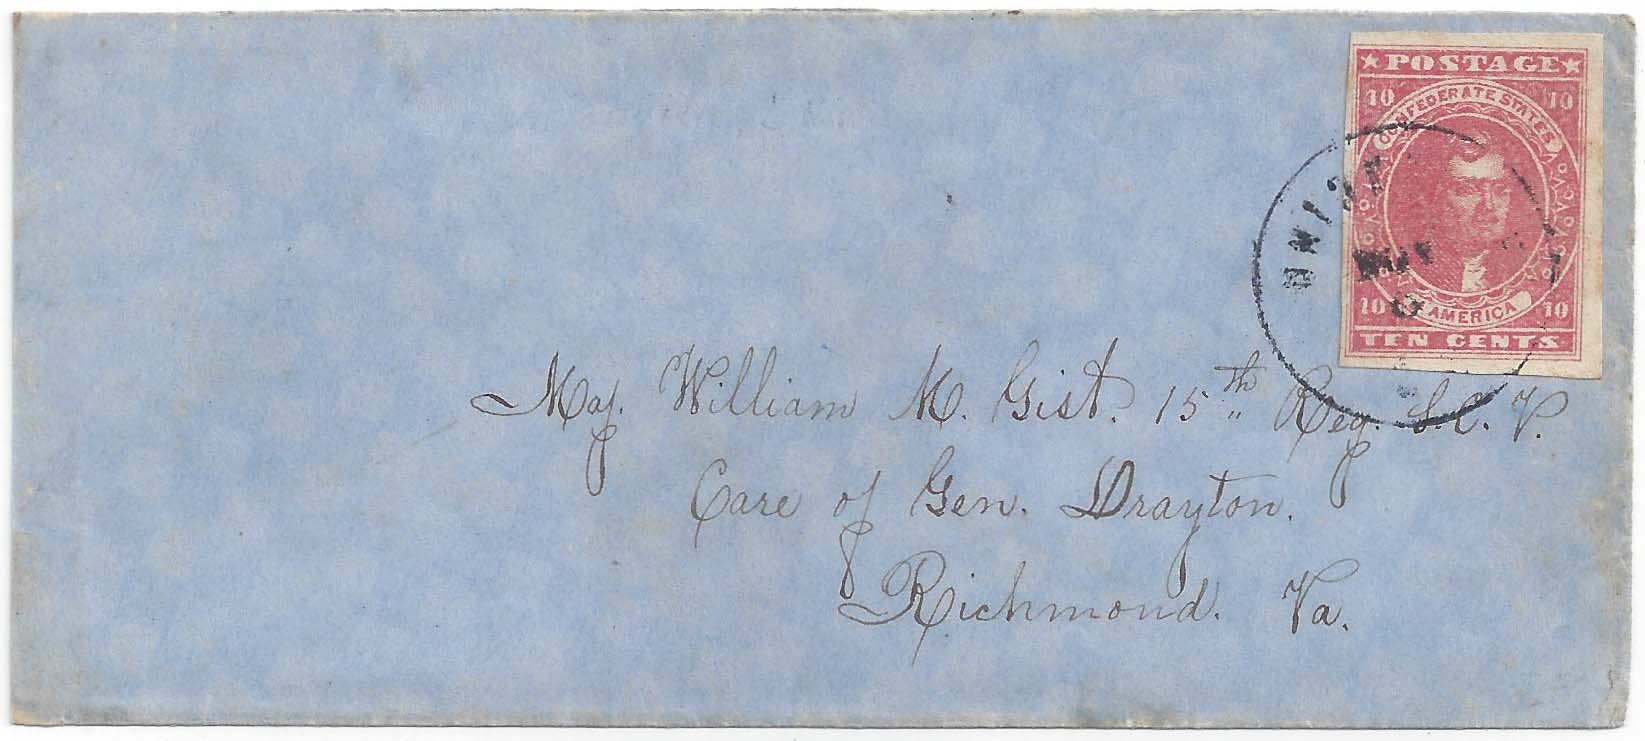 ★ POSTAGE ★
10 10
CONFEDERATE STATES
OF AMERICA
10 10
TEN CENTS
Maj. William M. Gist. 15th Reg. S.C. V.
Care of Gen. Drayton.
Richmond. Va.